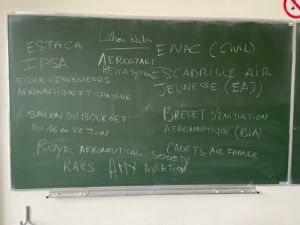 ESTACA
IPSA
ECOLE D'INGÉNIEURS
AÉRONAUTIQUE ET SPATIALE
AEROSTART
ENAC (CIVIL)
ESCADRILLE AIR
JEUNESSE (EAJ)
SALON DU BOURGET
DU 16 AU 22 JUIN
BREVET D'INITIATION
AÉRONAUTIQUE (BIA)
ROYAL AERONAUTICAL SOCIETY
RAES
CADETS AIR FRANCE
AMY AVIATION